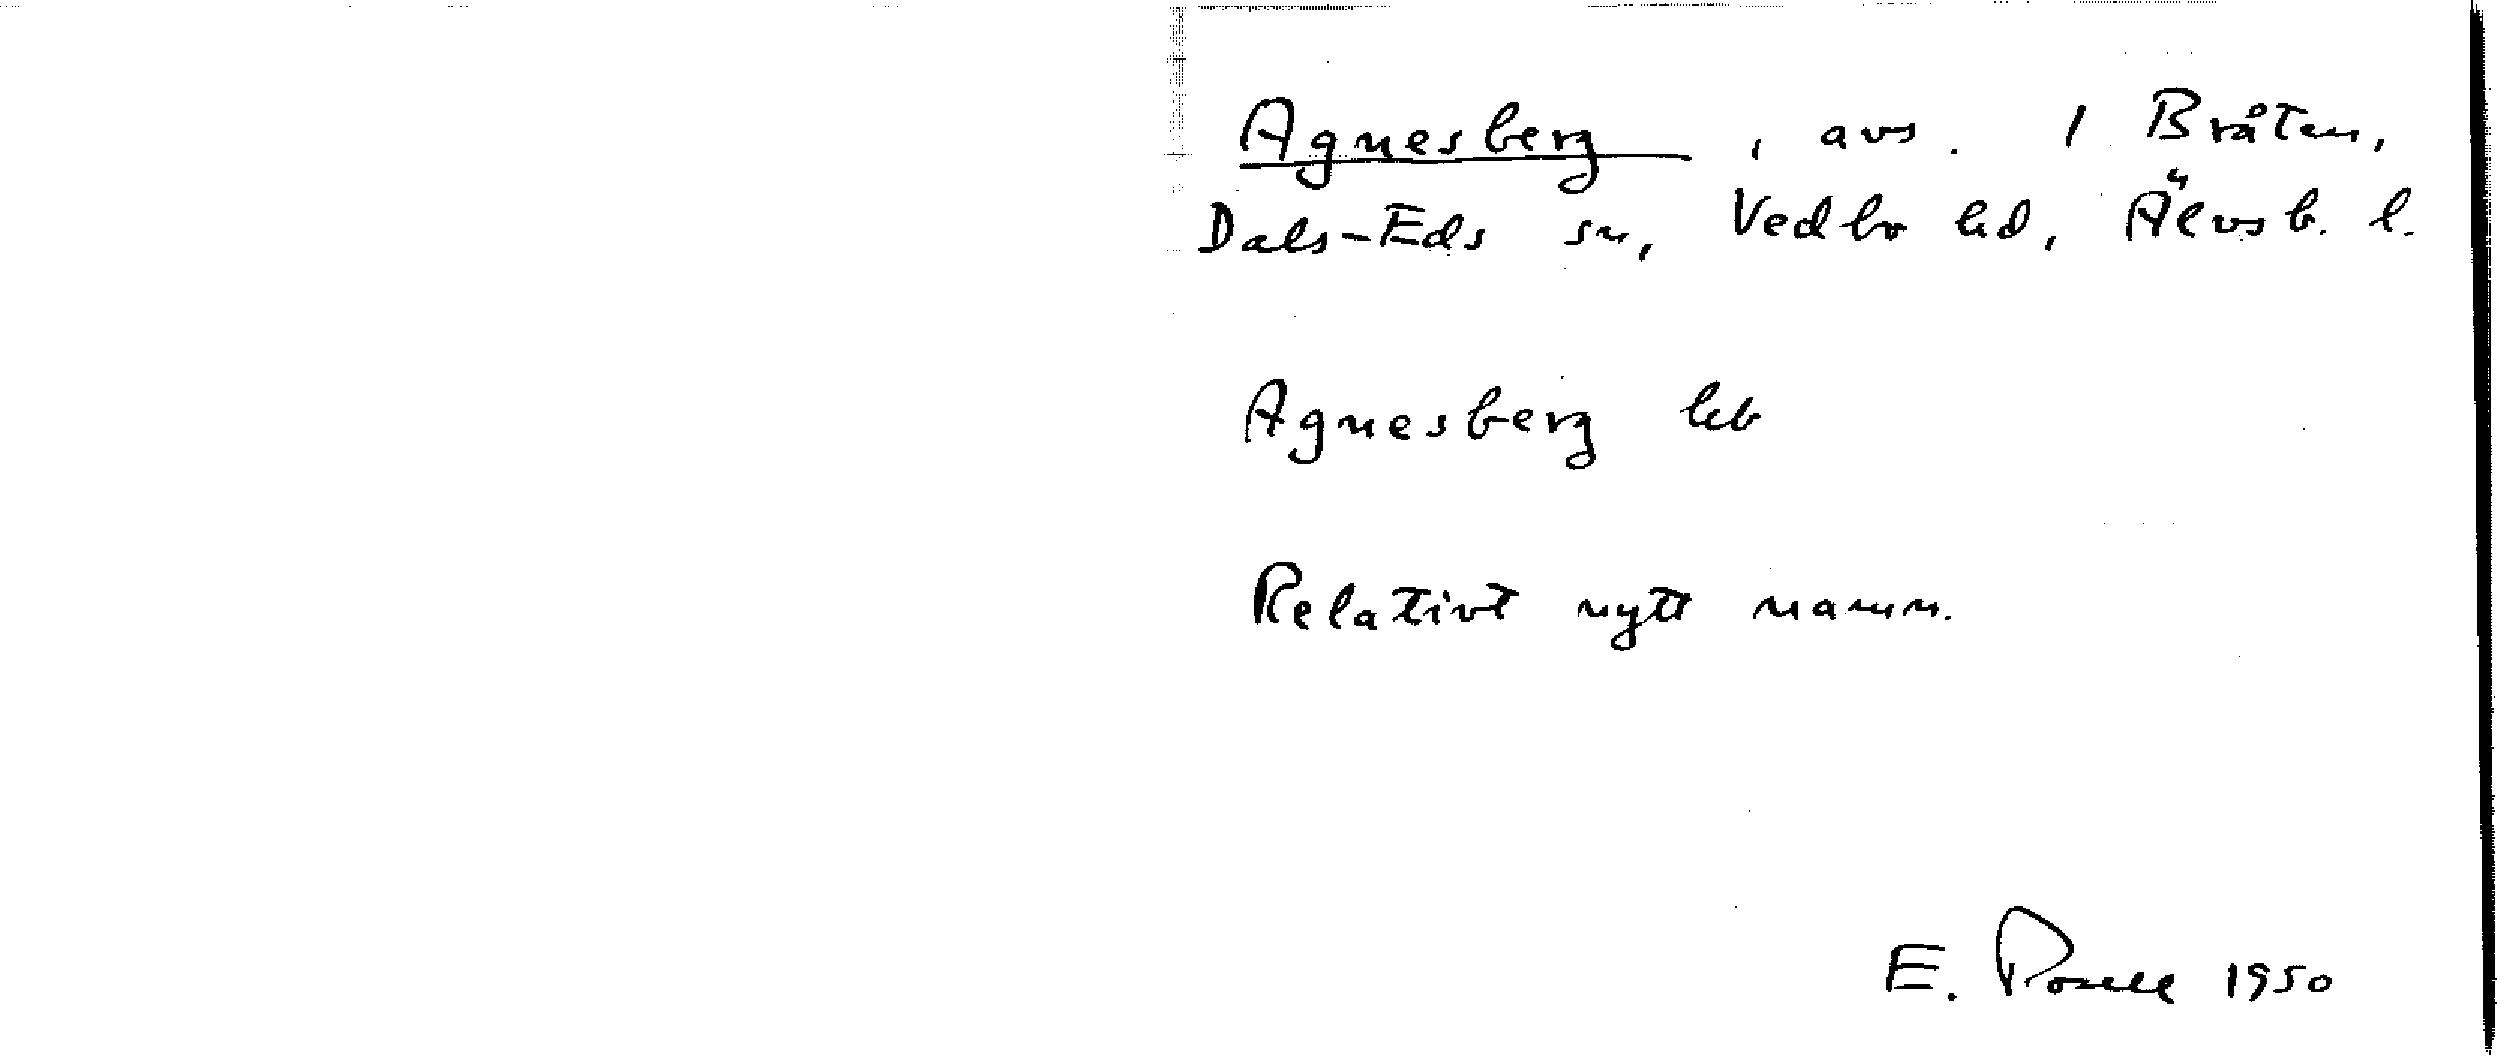 Agnesberg, avs. 1 Bråten,
Dals-Eds sn, Vedbo hd, Älvsb. l.
Agnesberg hb
Relativt nytt namn.
E. 1950